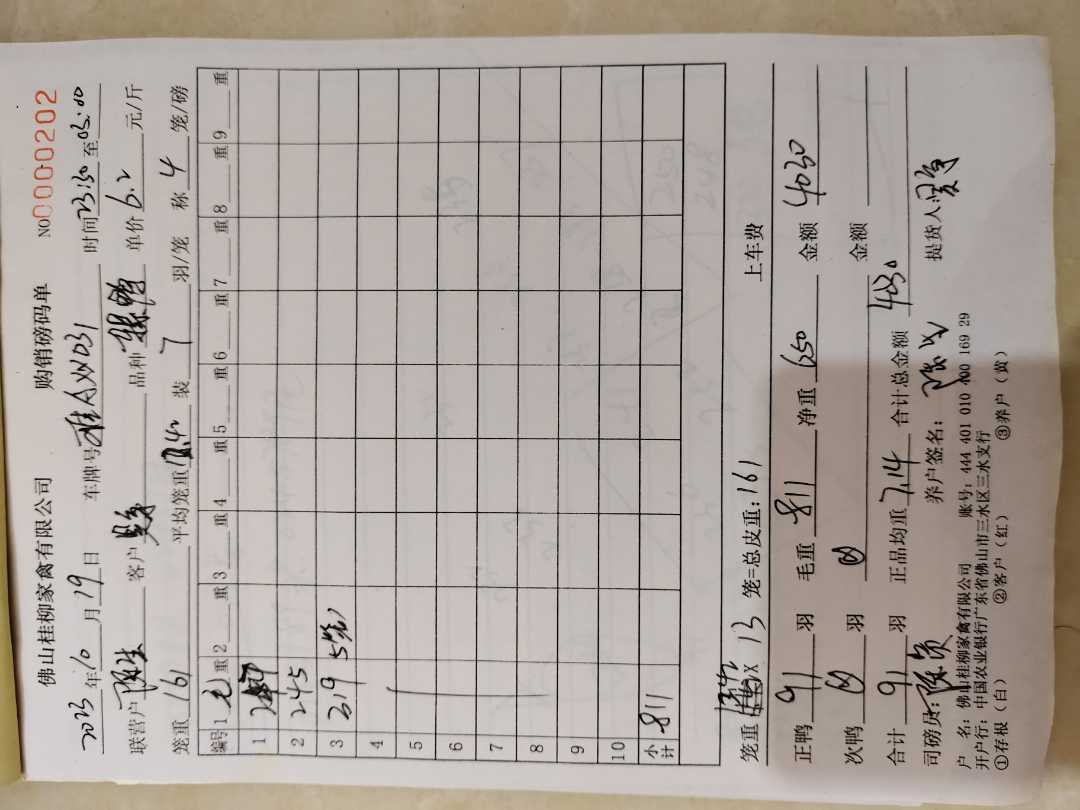 佛山桂柳家禽有限公司 购销磅码单 NO 0000202
2023年10月19日 车牌号桂AXW031 时间23:50至03:00
联营户 陈生 客户 品种 单价6.2元/斤
笼重161 平均笼重12.40 装7羽/笼 称4笼/磅
编号 1毛重 2重 3重 4重 5重 6重 7重 8重 9重
1
2 245
3 319 5笼
4
5
6
7
8
9
10
小计 811
笼重 12.4 X 13 笼=总皮重:161 上车费
正鸭91羽 毛重811 净重650 金额4030
次鸭0羽 0 金额
合计91羽 正品均重7.14 合计总金额4030
司磅员: 养户签名: 提货人:
户 名: 佛山桂柳家禽有限公司 账号: 444 401 010 400 169 29
开户行: 中国农业银行广东省佛山市三水区三水支行
①存根（白） ②客户（红） ③养户（黄）